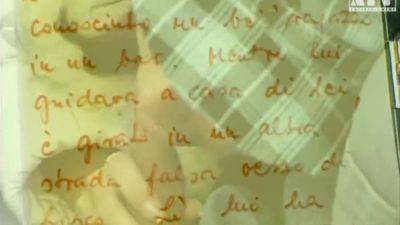 conosciuto un bel ragazzo
in un bar. Mentre lui
guidava a casa di lei,
è girato in un altra
strada falsa verso di
bosco. Lì lui ha